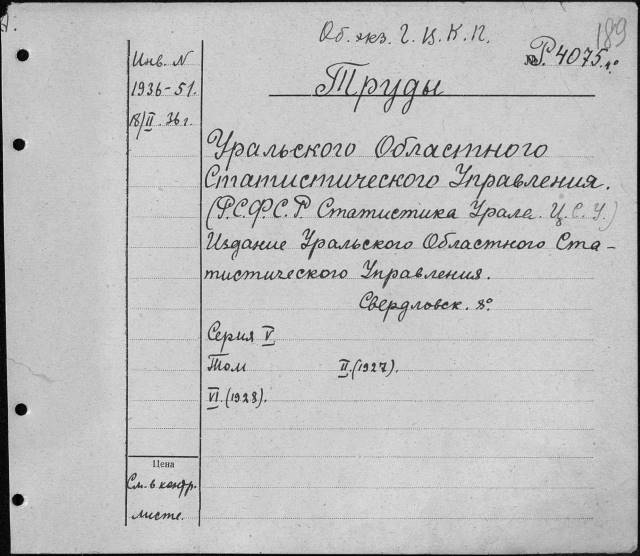 Об. экз. Г. Ц. К. П.
189
№ Р. 4075. 4°
Инв. N
1936-51.
18/II. 36 г.
Труды
Уральского Областного
Статистического Управления.
(Р.С.Ф.С.Р. Статистика Урала. Ц.С.У.)
Издание Уральского Областного Ста-
тистического Управления.
Свердловск. 8°.
Серия V
Том II.(1927).
VI.(1928).
Цена
См. в контр.
листе.